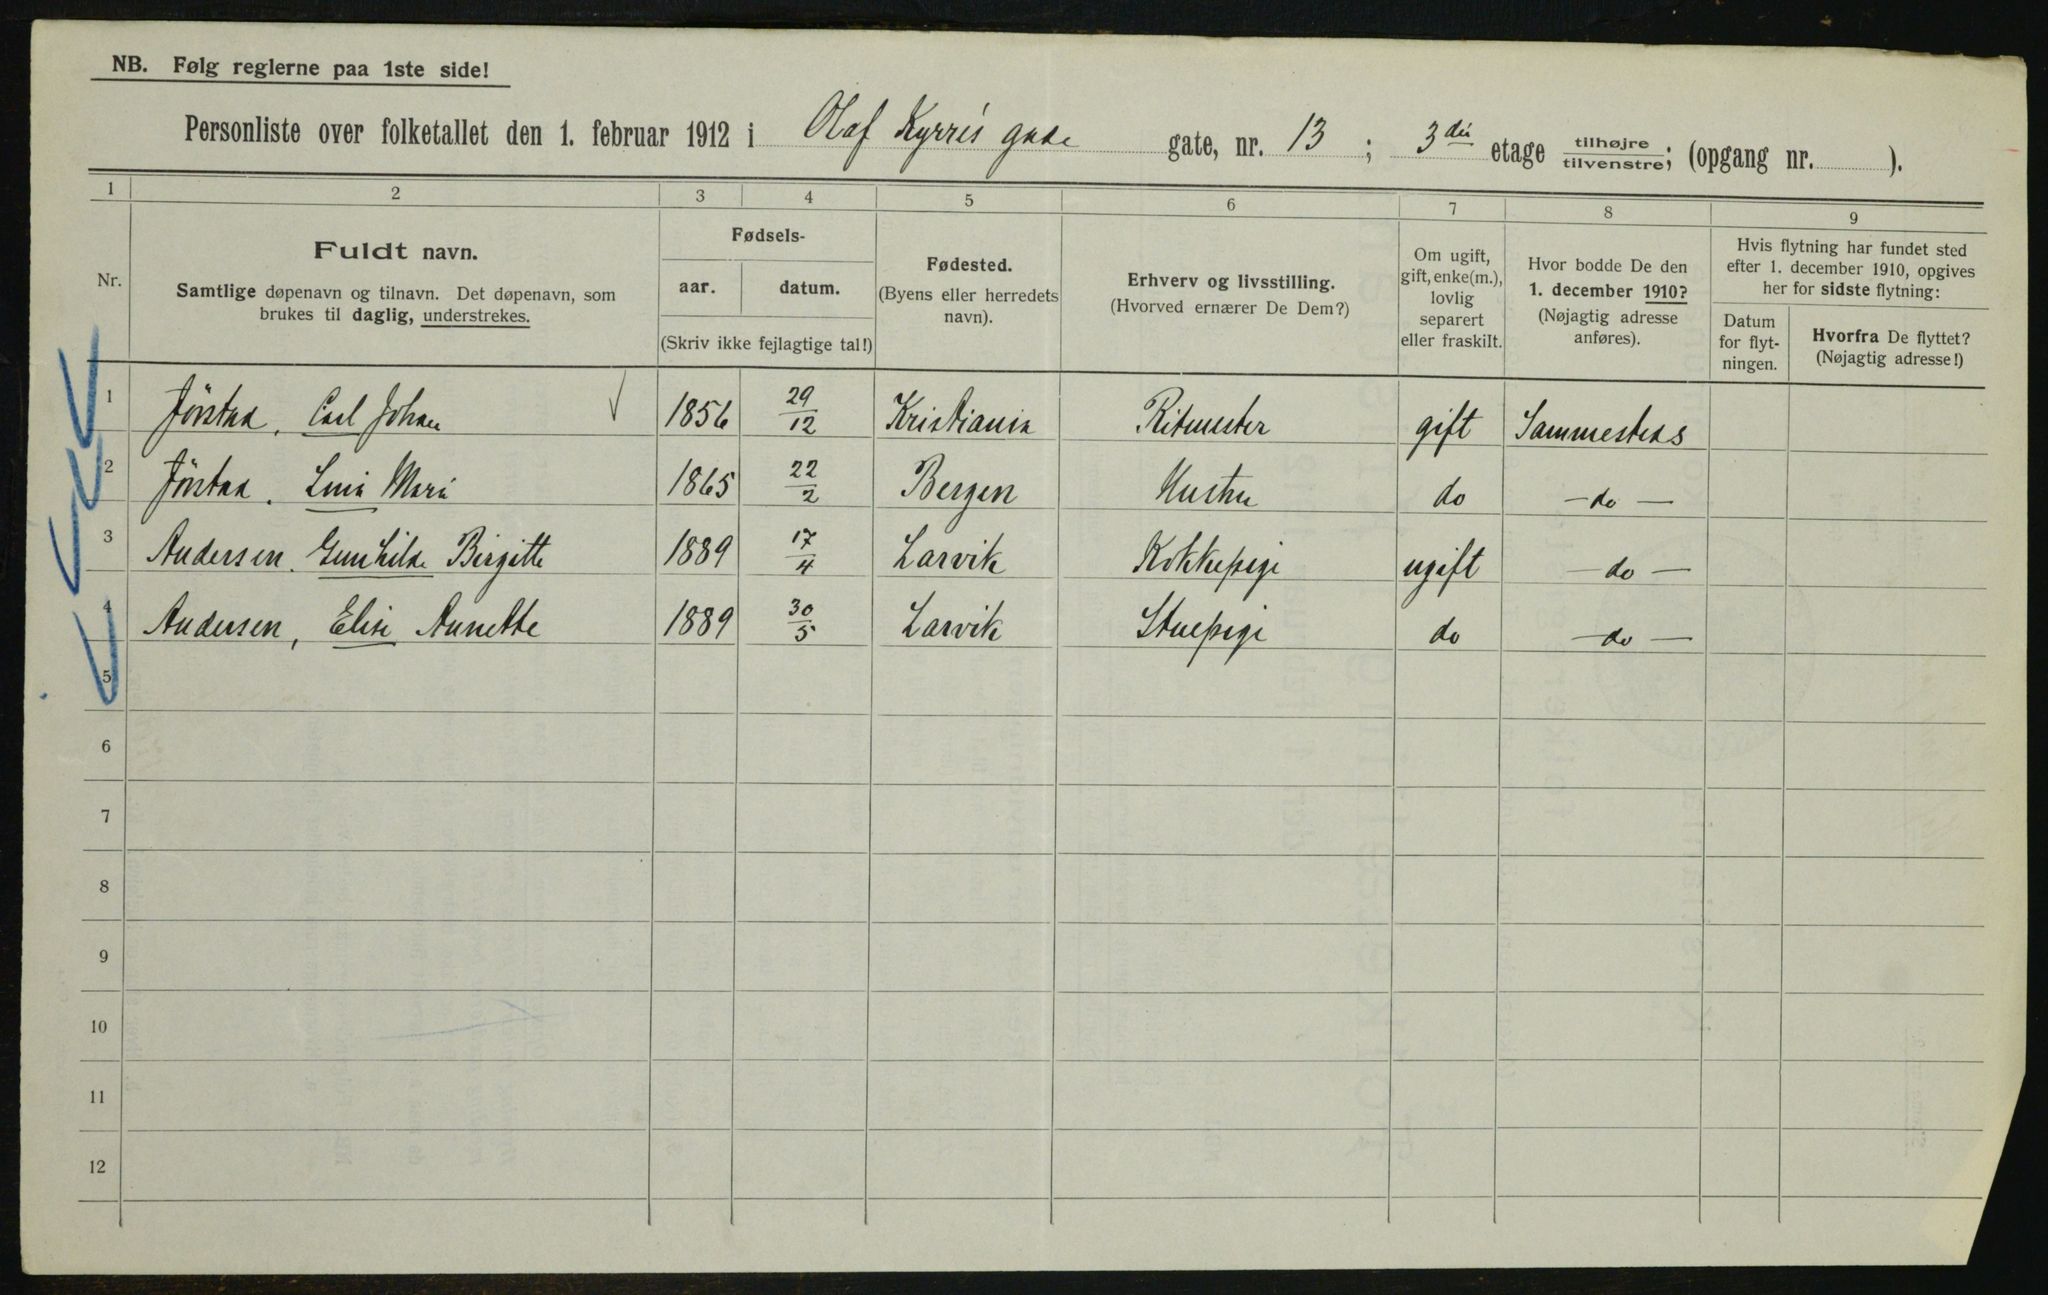 NB. Følg reglerne paa 1ste side!
Personliste over folketallet den 1. februar 1912 i Olaf Kyrres gade gate, nr. 13; 3die etage tilhøjre/tilvenstre; (opgang nr. ).
1 2 3 4 5 6 7 8 9
Nr.
Fuldt navn.
Samtlige døpenavn og tilnavn. Det døpenavn, som
brukes til daglig, understrekes.
Fødsels-
aar. datum.
(Skriv ikke fejlagtige tal!)
Fødested.
(Byens eller herredets
navn).
Erhverv og livsstilling.
(Hvorved ernærer De Dem?)
Om ugift,
gift, enke(m.),
lovlig
separert
eller fraskilt.
Hvor bodde De den
1. december 1910?
(Nøjagtig adresse
anføres).
Hvis flytning har fundet sted
efter 1. december 1910, opgives
her for sidste flytning:
Datum
for flyt-
ningen.
Hvorfra De flyttet?
(Nøjagtig adresse!)
1 Jörstad, Carl Johan 1856 29/12 Kristiania Ritmester gift Sammesteds
2 Jörstad, Marie 1865 22/2 Bergen Hustru do — do —
3 Andersen, Gunhilde Birgitte 1889 17/4 Larvik Kokkepige ugift — do —
4 Andersen, Elise Annette 1889 30/5 Larvik Stuepige do — do —
5
6
7
8
9
10
11
12